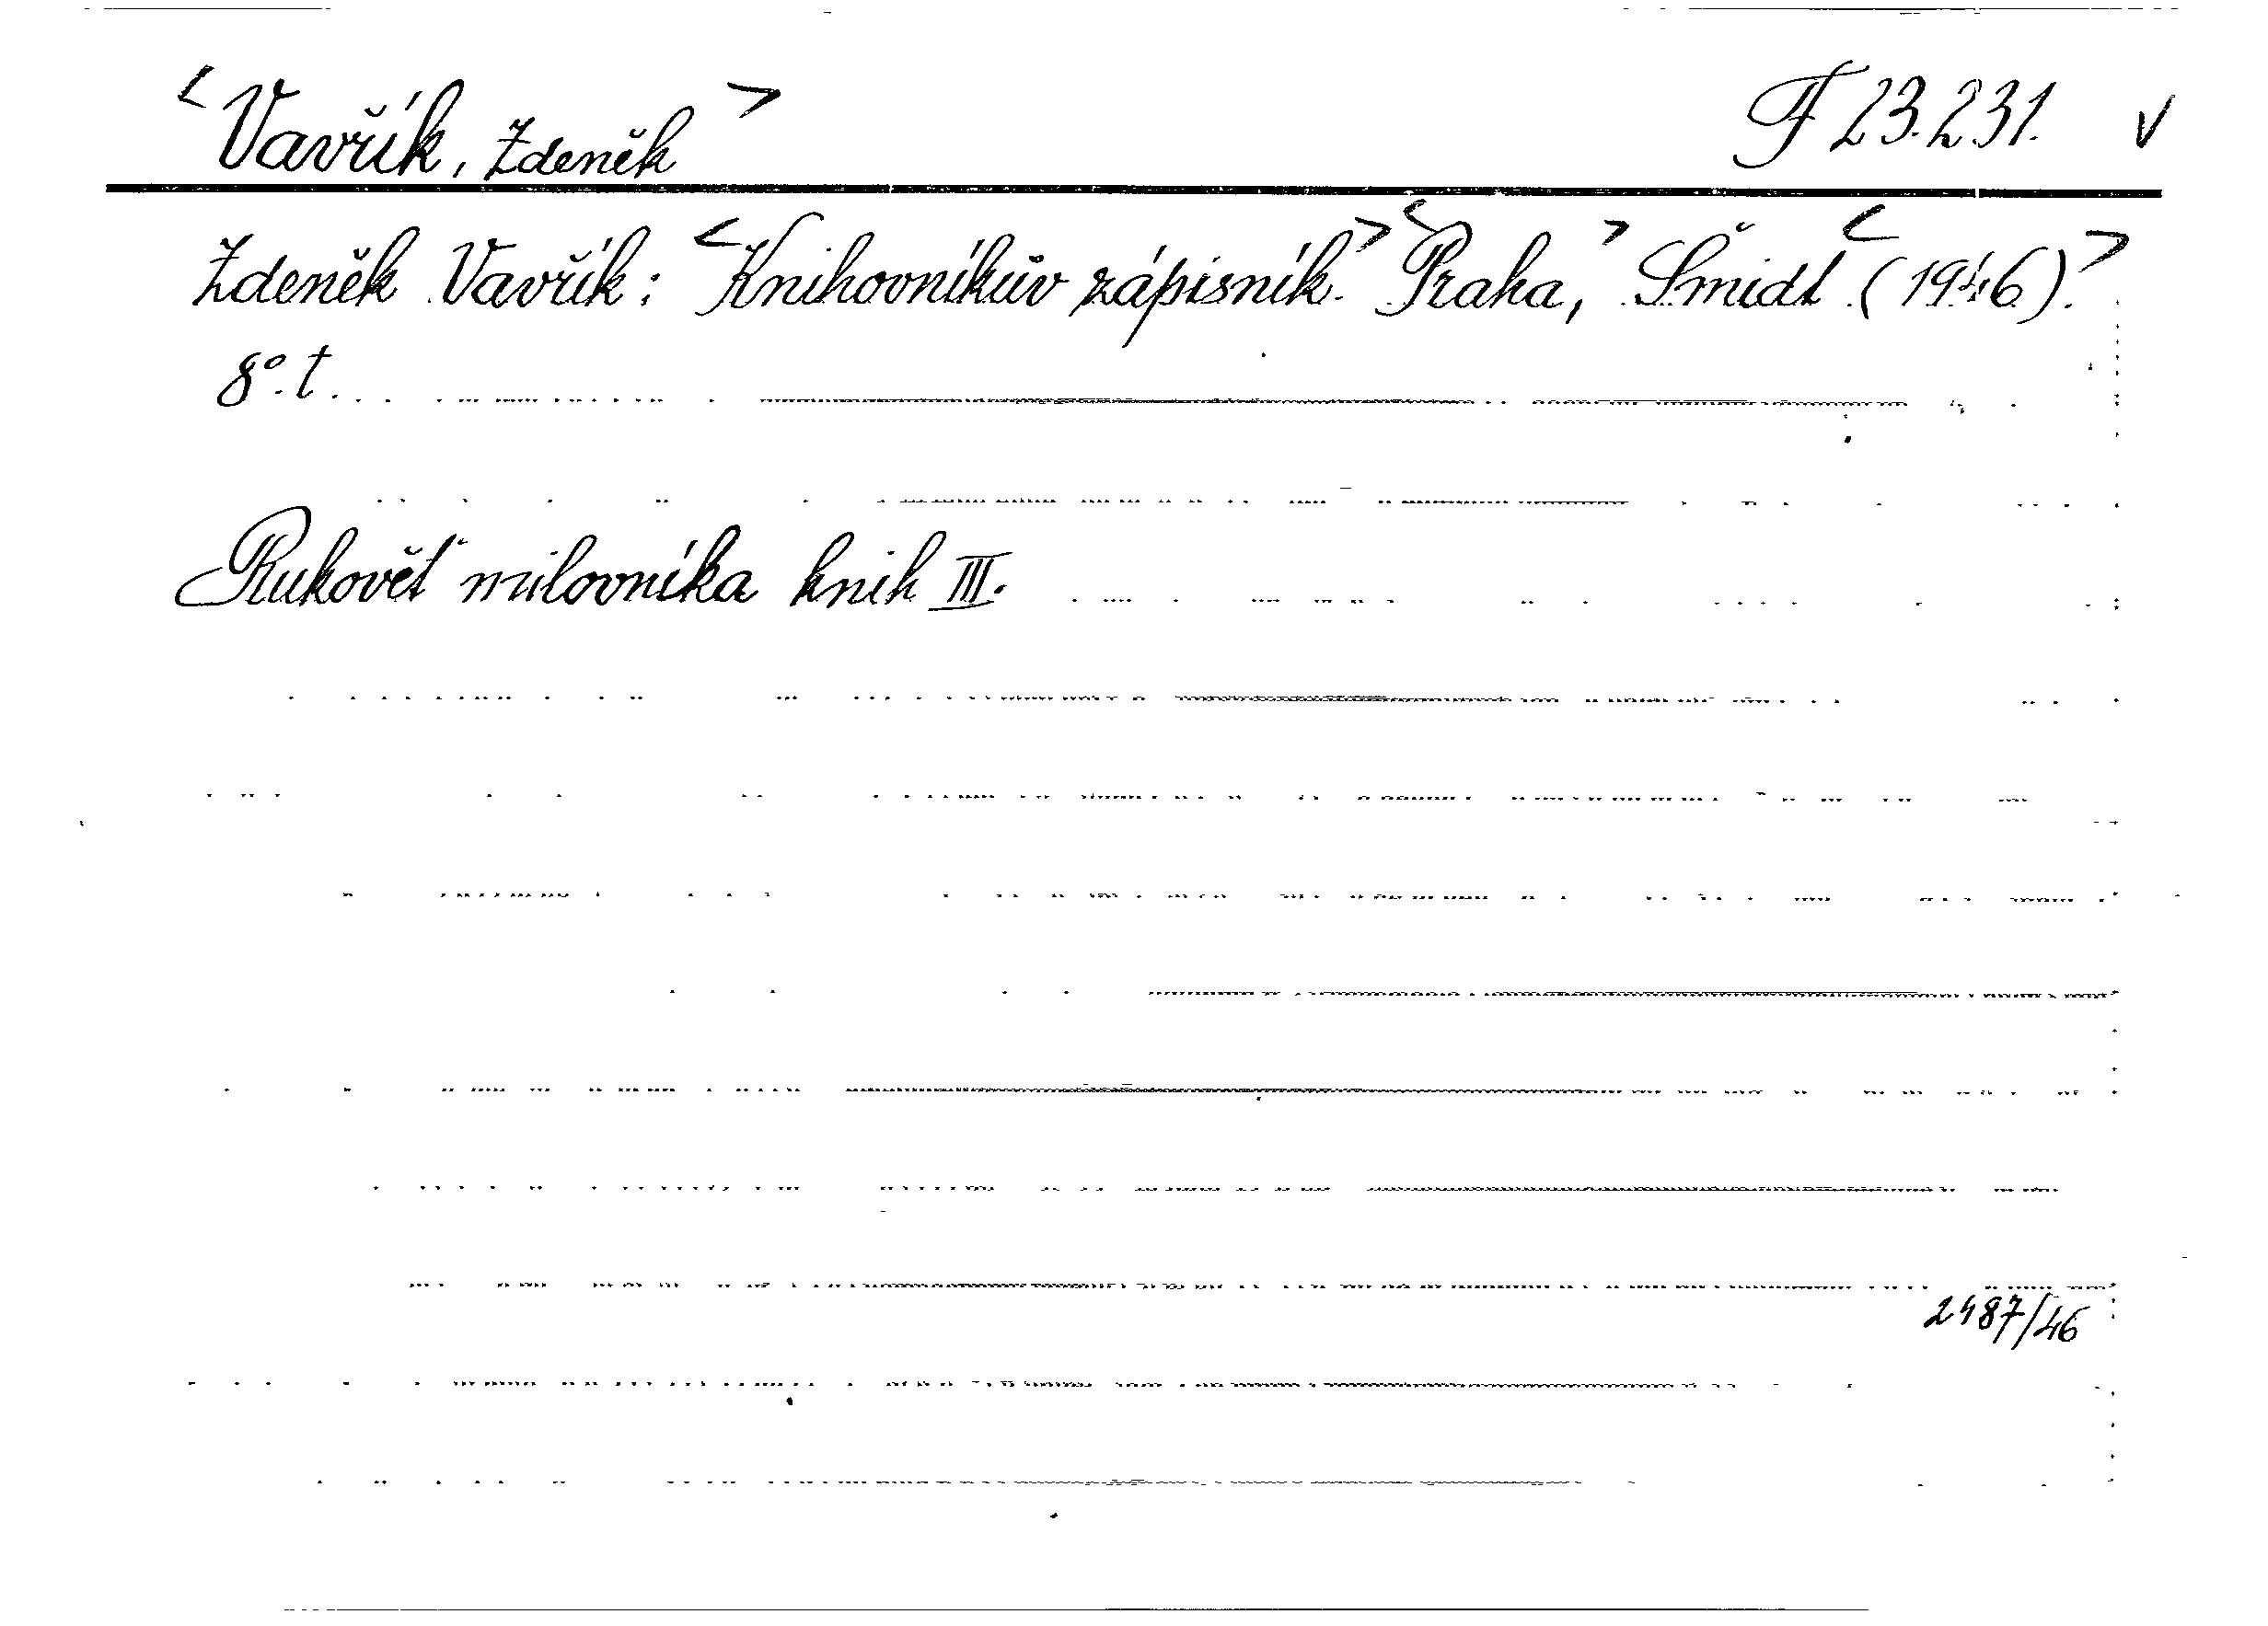 <Vavřík, Zdeněk> F 23.231. v
Zdeněk Vavřík: <Knihovníkův zápisník.> <Praha,> Šmidt <(1946).>
8°. t.
Rukověť milovníka knih III.
2487/46